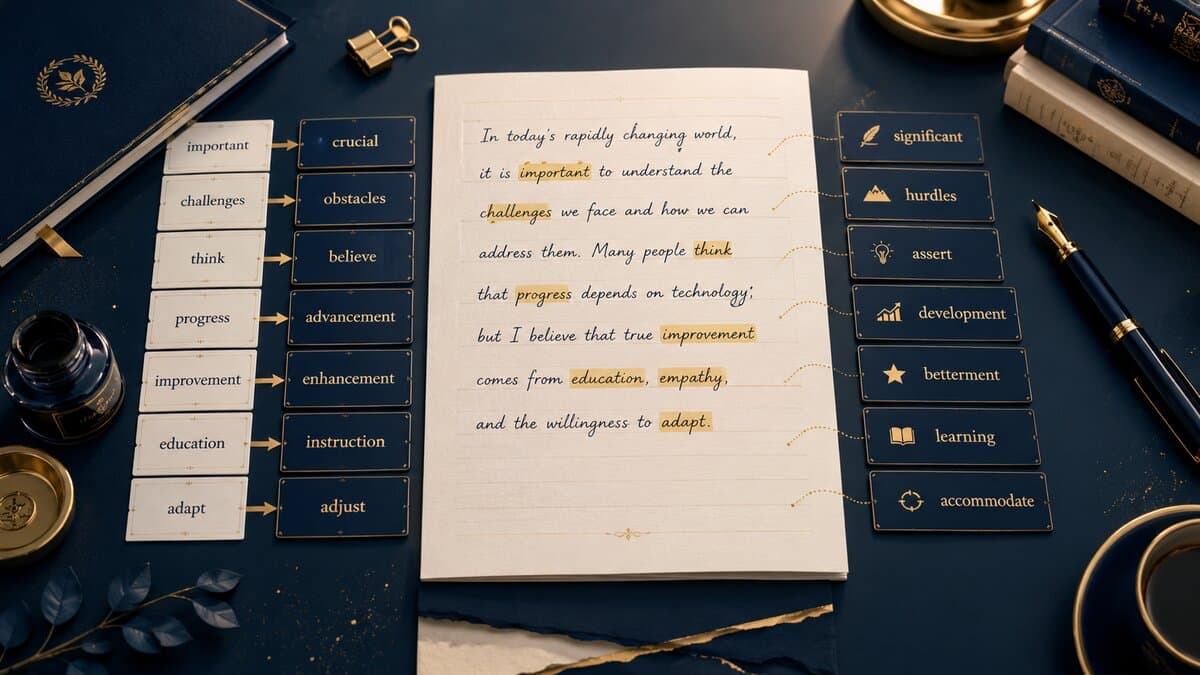 important
crucial
challenges
obstacles
think
believe
progress
advancement
improvement
enhancement
education
instruction
adapt
adjust
In today's rapidly changing world,
it is important to understand the
challenges we face and how we can
address them. Many people think
that progress depends on technology;
but I believe that true improvement
comes from education, empathy,
and the willingness to adapt.
significant
hurdles
assert
development
betterment
learning
accommodate